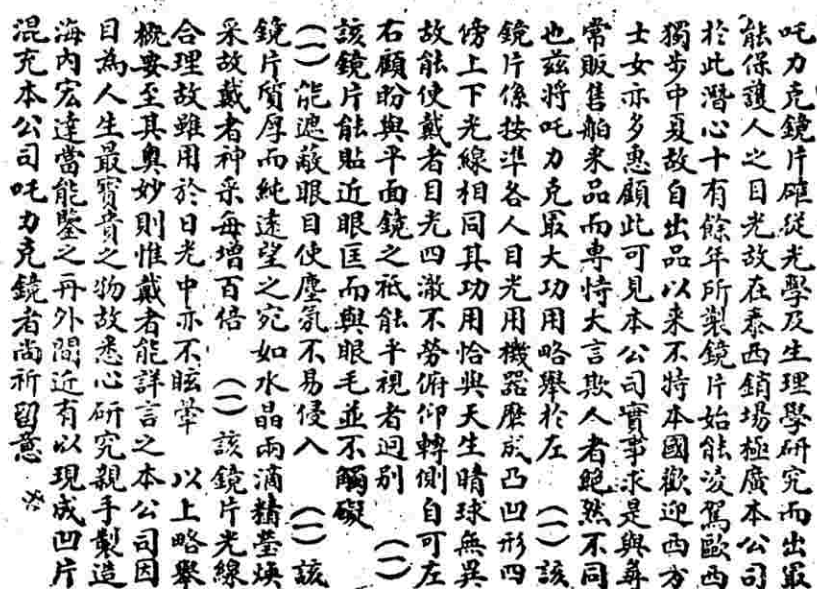 吒力克鏡片確從光學及生理學研究而出最
能保護人之目光故在泰西銷場極廣本公司
於此潛心十有餘年所製鏡片始能凌駕歐西
獨步中夏故自出品以来不特本國歡迎西方
士女亦多惠顧此可見本公司實事求是與尋
常販售舶来品而専恃大言欺人者絕然不同
也茲将吒力克最大功用略舉於左　(一)該
鏡片係按準各人目光用機器磨成凸凹形四
傍上下光線相同其功用恰與天生晴球無異
故能使戴者目光四澈不勞俯仰轉側自可左
右顧盼與平面鏡之祗能平視者迥别　(一)
該鏡片能貼近眼匡而與眼毛並不觸礙
(一)能遮蔽眼目使塵氛不易侵入　(一)該
鏡片質厚而純遠望之宛如水晶兩滴精瑩煥
采故戴者神采每增百倍　(一)該鏡片光線
合理故雖用於日光中亦不眩暈　以上略舉
概要至其奥妙則惟戴者能詳言之本公司因
目為人生最寳貴之物故悉心研究親手製造
海内宏達當能鑒之再外間近有以現成凹片
混充本公司吒力克鏡者尚祈留意